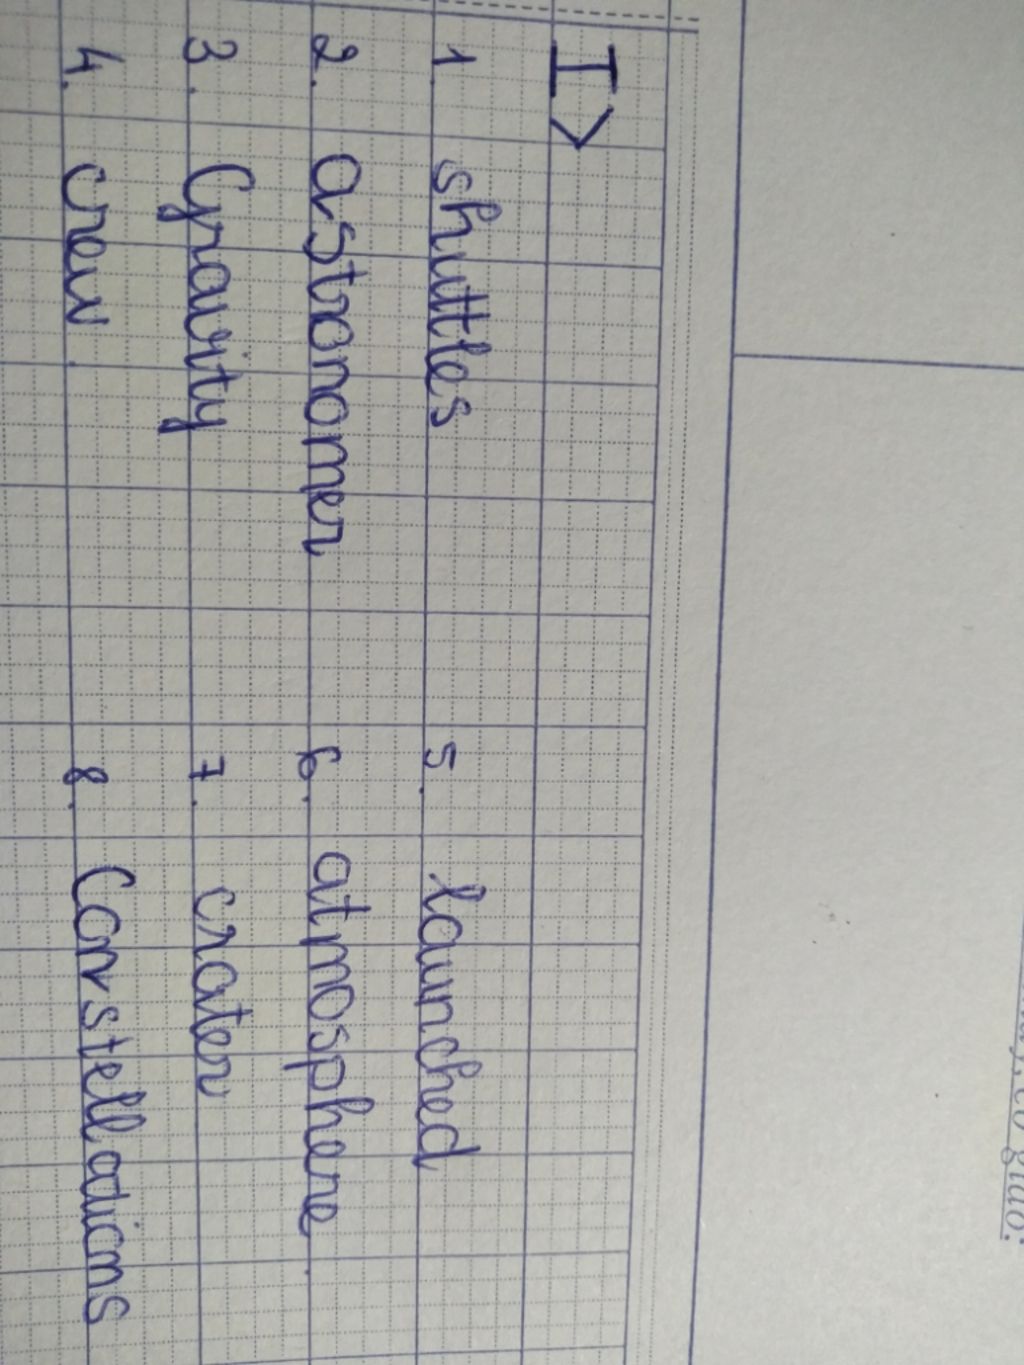 I>
1. shuttles 5. launched
2. astronomer 6. atmosphere.
3. Gravity 7. crater
4. crew. 8. Constellations